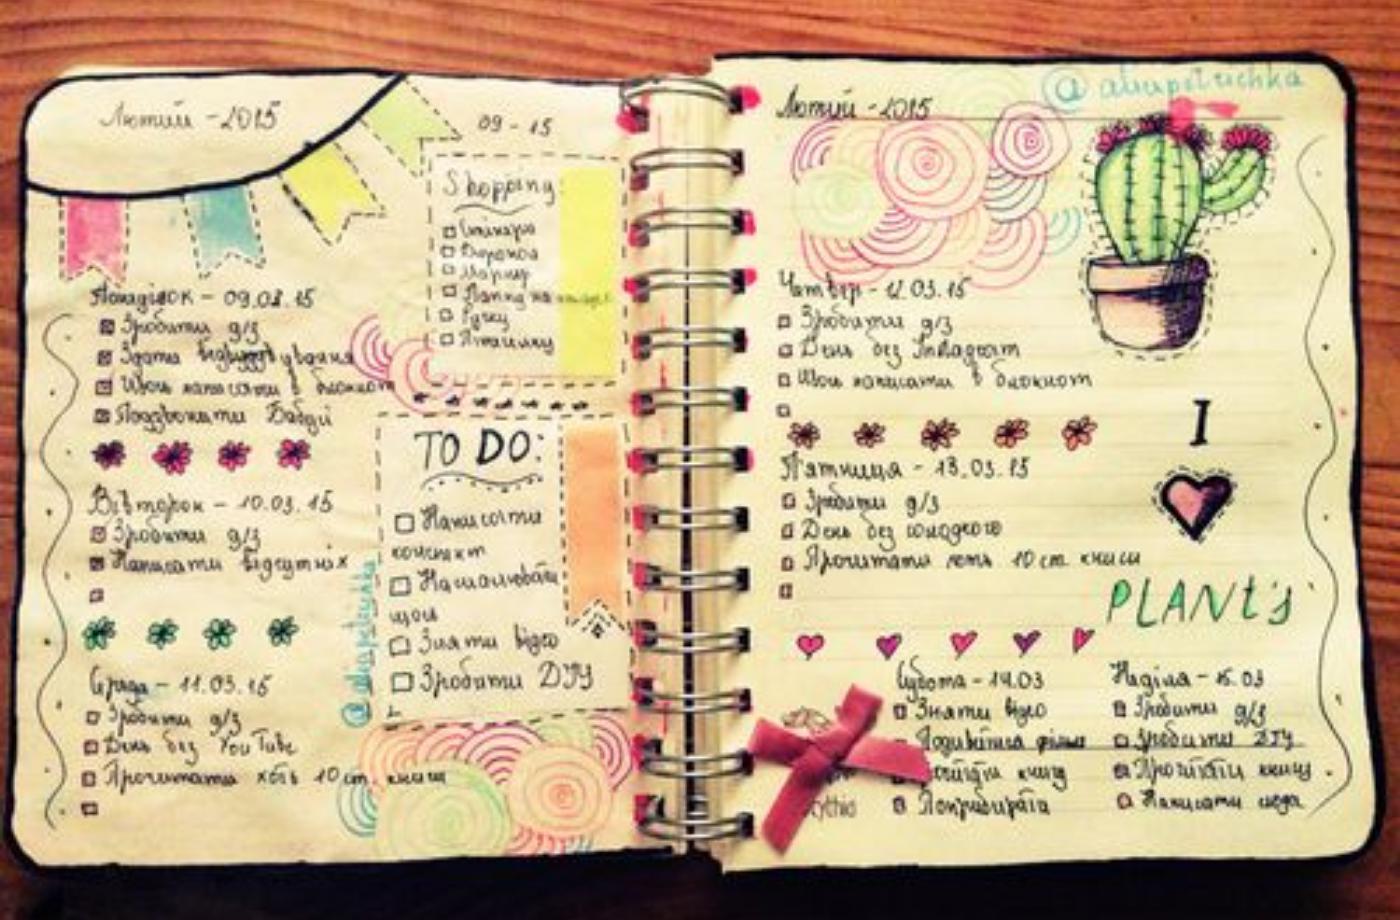 Лютий - 2015
09 - 15
Shopping:
Стікери
Маркер
Папку на
Ручку
Понеділок - 09.03.15
Зробити д/з
Здати
Щось написати в блокнот
Подзвонити Бабусі
Вівторок - 10.03.15
Зробити д/з
Написати відсутніх
Середа - 11.03.15
Зробити д/з
День без YouTube
Прочитати хоть 10 ст. книги
TO DO:
Написати
конспект
Намалювати
щось
Зняти відео
Зробити DIY
@alinapetrychka
Лютий - 2015
@alinapetrichka
Четвер - 12.03.15
Зробити д/з
День без Instagram
Щось написати в блокнот
П'ятниця - 13.03.15
Зробити д/з
День без солодкого
Прочитати хоть 10 ст. книги
I
PLANt's
Субота - 14.03
Зняти відео
Подивитися фільм
книгу
Поприбирати
Неділя - 15.03
Зробити д/з
Зробити DIY
книгу
Написати сюда